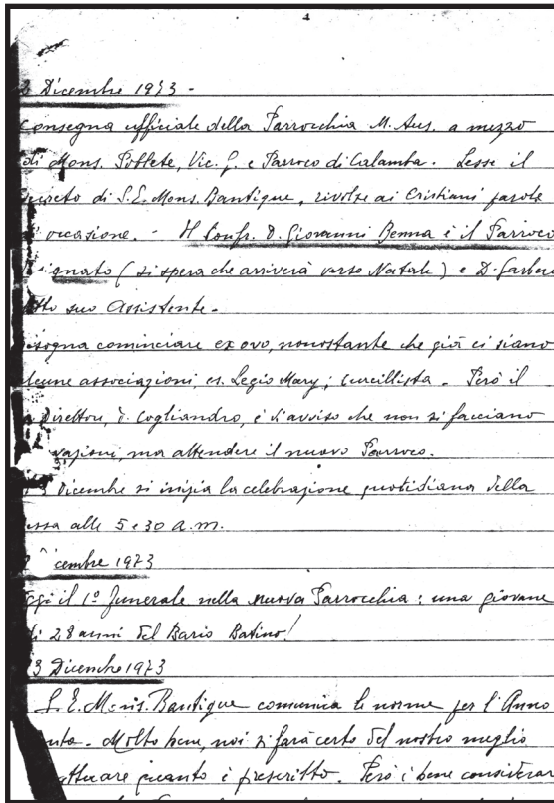 Dicembre 1973 -
Consegna ufficiale della Parrocchia M. Aus. a mezzo
di Mons. Poblete, Vic. G. e Parroco di Calamba. Lesse il
creto di S.E. Mons. Bantigue, rivolse ai Cristiani parole
occasione. - Il Confr. D. Giovanni Benna è il Parroco
ignato (si spera che arriverà verso Natale) e D. Garbero
tto suo Assistente.
isogna cominciare ex ovo, nonostante che già ci siano
lcune associazioni, es. Legio Mary; Curcillista. Però il
Direttore, D. Cogliandro, è d'avviso che non si facciano
vazioni, ma attendere il nuovo Parroco.
Dicembre si inizia la celebrazione quotidiana della
essa alle 5 e 30 a.m.
cembre 1973
ggi il 1º Funerale nella nuova Parrocchia: una giovane
di 28 anni del Bario Batino!
3 Dicembre 1973
S. E. Mons. Bantigue comunica le norme per l'Anno
nto. Molto bene, noi si farà certo del nostro meglio
attuare quanto è prescritto. Però è bene considerar